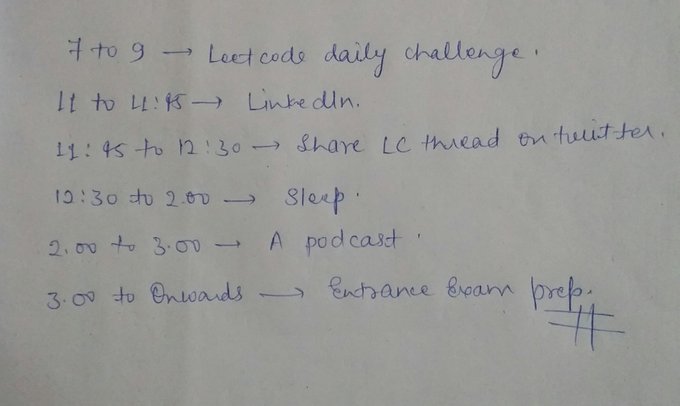 7 to 9 → Leetcode daily challenge.
11 to 11:45 → LinkedIn.
11:45 to 12:30 → Share LC thread on twitter.
12:30 to 2.00 → Sleep.
2.00 to 3.00 → A podcast.
3.00 to Onwards → Entrance Exam prep.